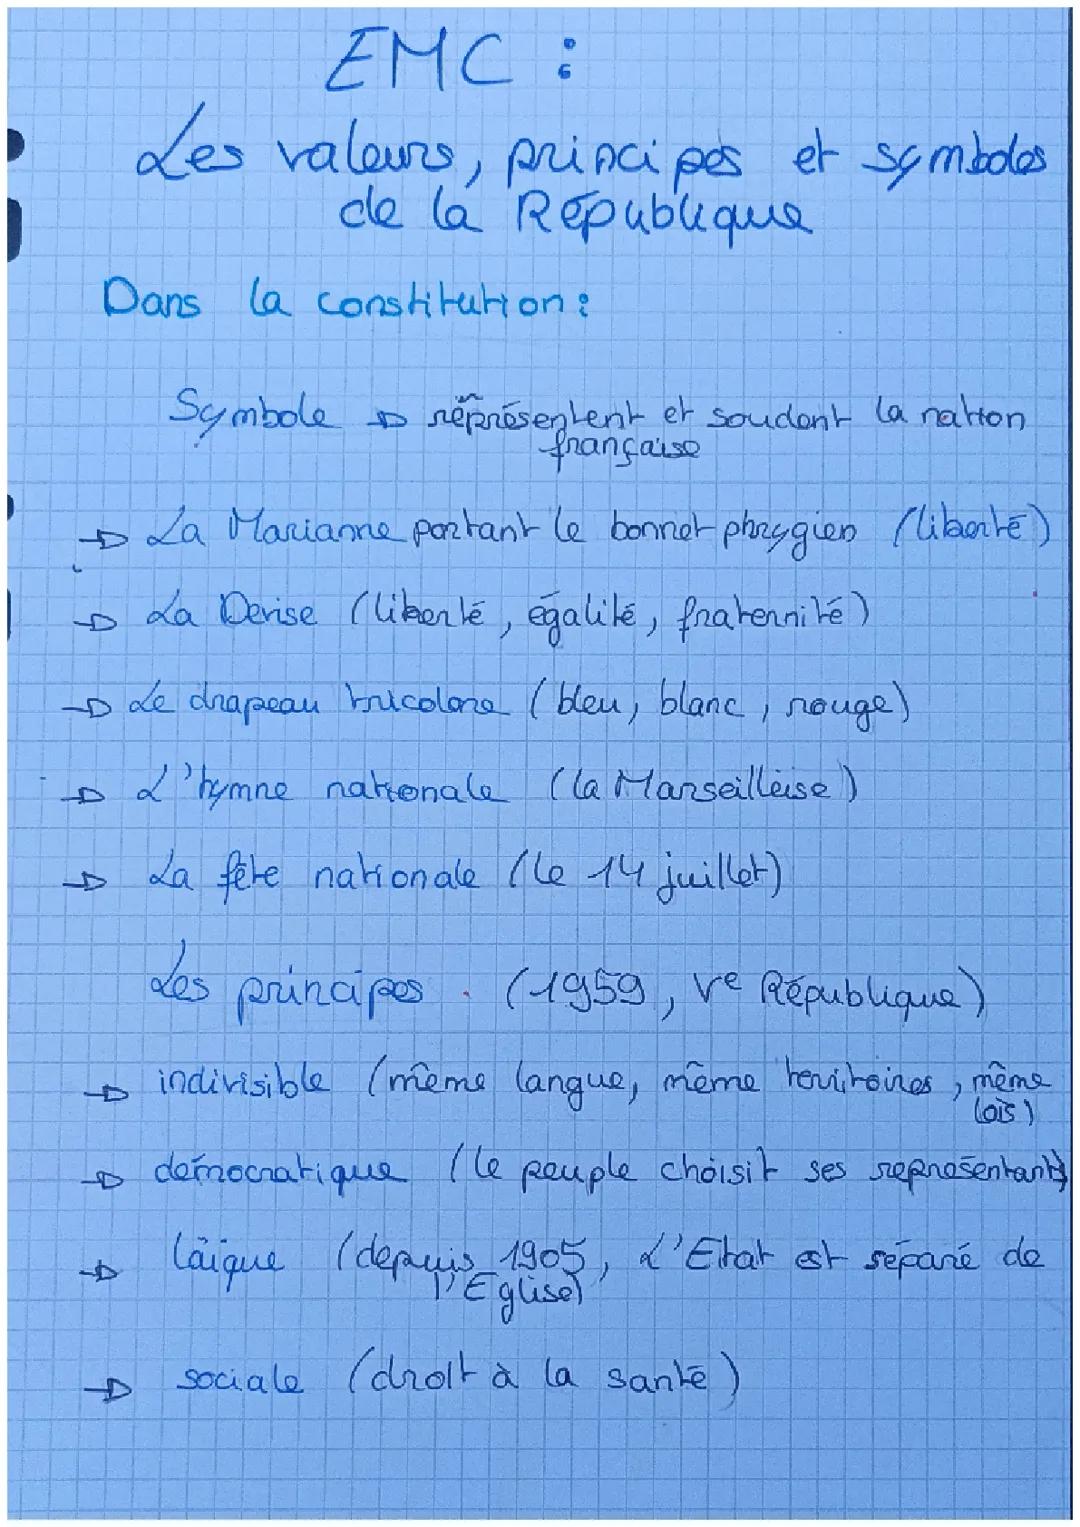 EMC :
Les valeurs, principes et symboles
de la République
Dans la constitution :
Symbole → réprésentent et soudent la nation
française
→ La Marianne portant le bonnet phrygien (liberté)
→ La Devise (liberté, égalité, fraternité)
→ Le drapeau tricolore (bleu, blanc, rouge)
→ L'hymne nationale (la Marseilleise)
→ La fête nationale (le 14 juillet)
Les principes. (1959, Ve République)
→ indivisible (même langue, même territoires, même
lois)
→ démocratique (le peuple choisit ses représentants)
→ laïque (depuis 1905, L'Etat est séparé de
l'Eglise)
→ sociale (droit à la santé)